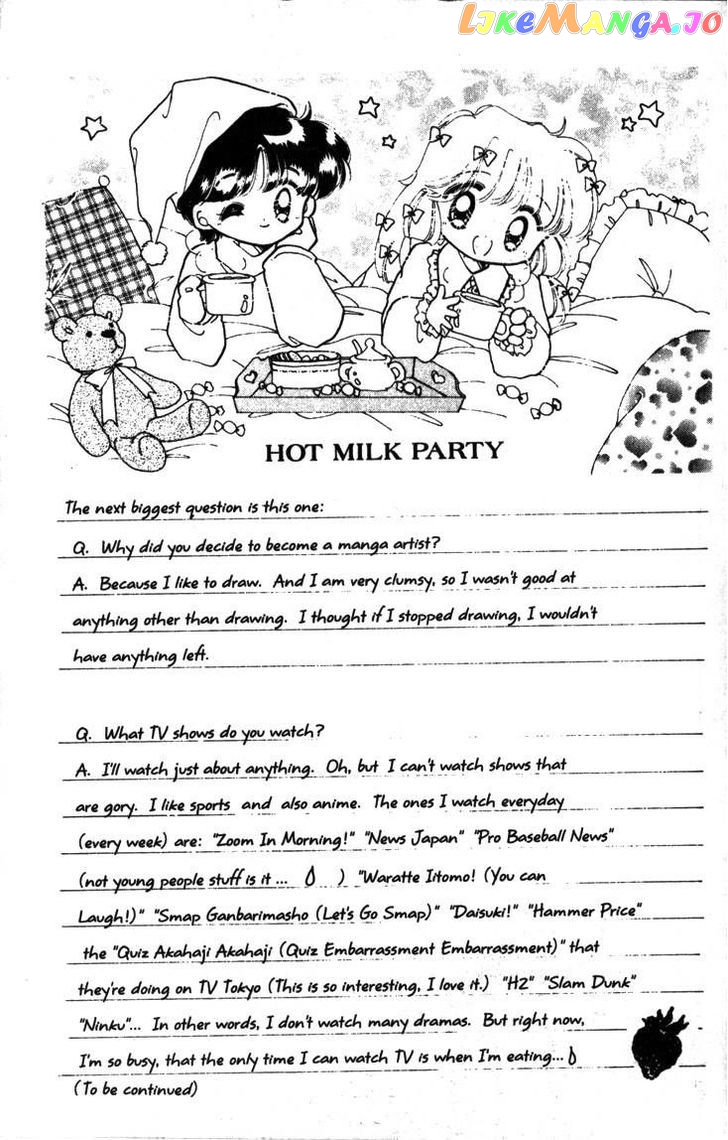 LIKEMANGA.IO
HOT MILK PARTY
The next biggest question is this one:
Q. Why did you decide to become a manga artist?
A. Because I like to draw. And I am very clumsy, so I wasn't good at
anything other than drawing. I thought if I stopped drawing, I wouldn't
have anything left.
Q. What TV shows do you watch?
A. I'll watch just about anything. Oh, but I can't watch shows that
are gory. I like sports and also anime. The ones I watch everyday
(every week) are: "Zoom In Morning!" "News Japan" "Pro Baseball News"
(not young people stuff is it... ) "Waratte Iitomo! (You can
Laugh!)" "Smap Ganbarimasho (Let's Go Smap)" "Daisuki!" "Hammer Price"
the "Quiz Akahaji Akahaji (Quiz Embarrassment Embarrassment)" that
they're doing on TV Tokyo (This is so interesting, I love it.) "H2" "Slam Dunk"
"Ninku"... In other words, I don't watch many dramas. But right now,
I'm so busy, that the only time I can watch TV is when I'm eating...
(To be continued)